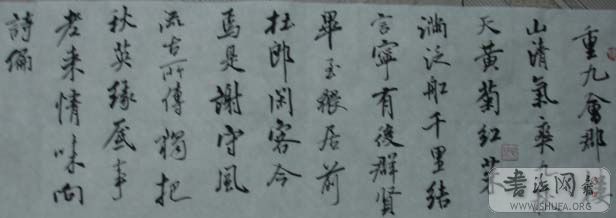 重九會郡樓
山清氣爽九秋
天黃菊紅茱
滿泛船千里結
言寧有後群賢
畢至猥居前
杜郎闲客今
焉是謝守風
流古所傳獨把
秋英緣底事
老来情味向
詩偏
WWW.SHUFA.ORG